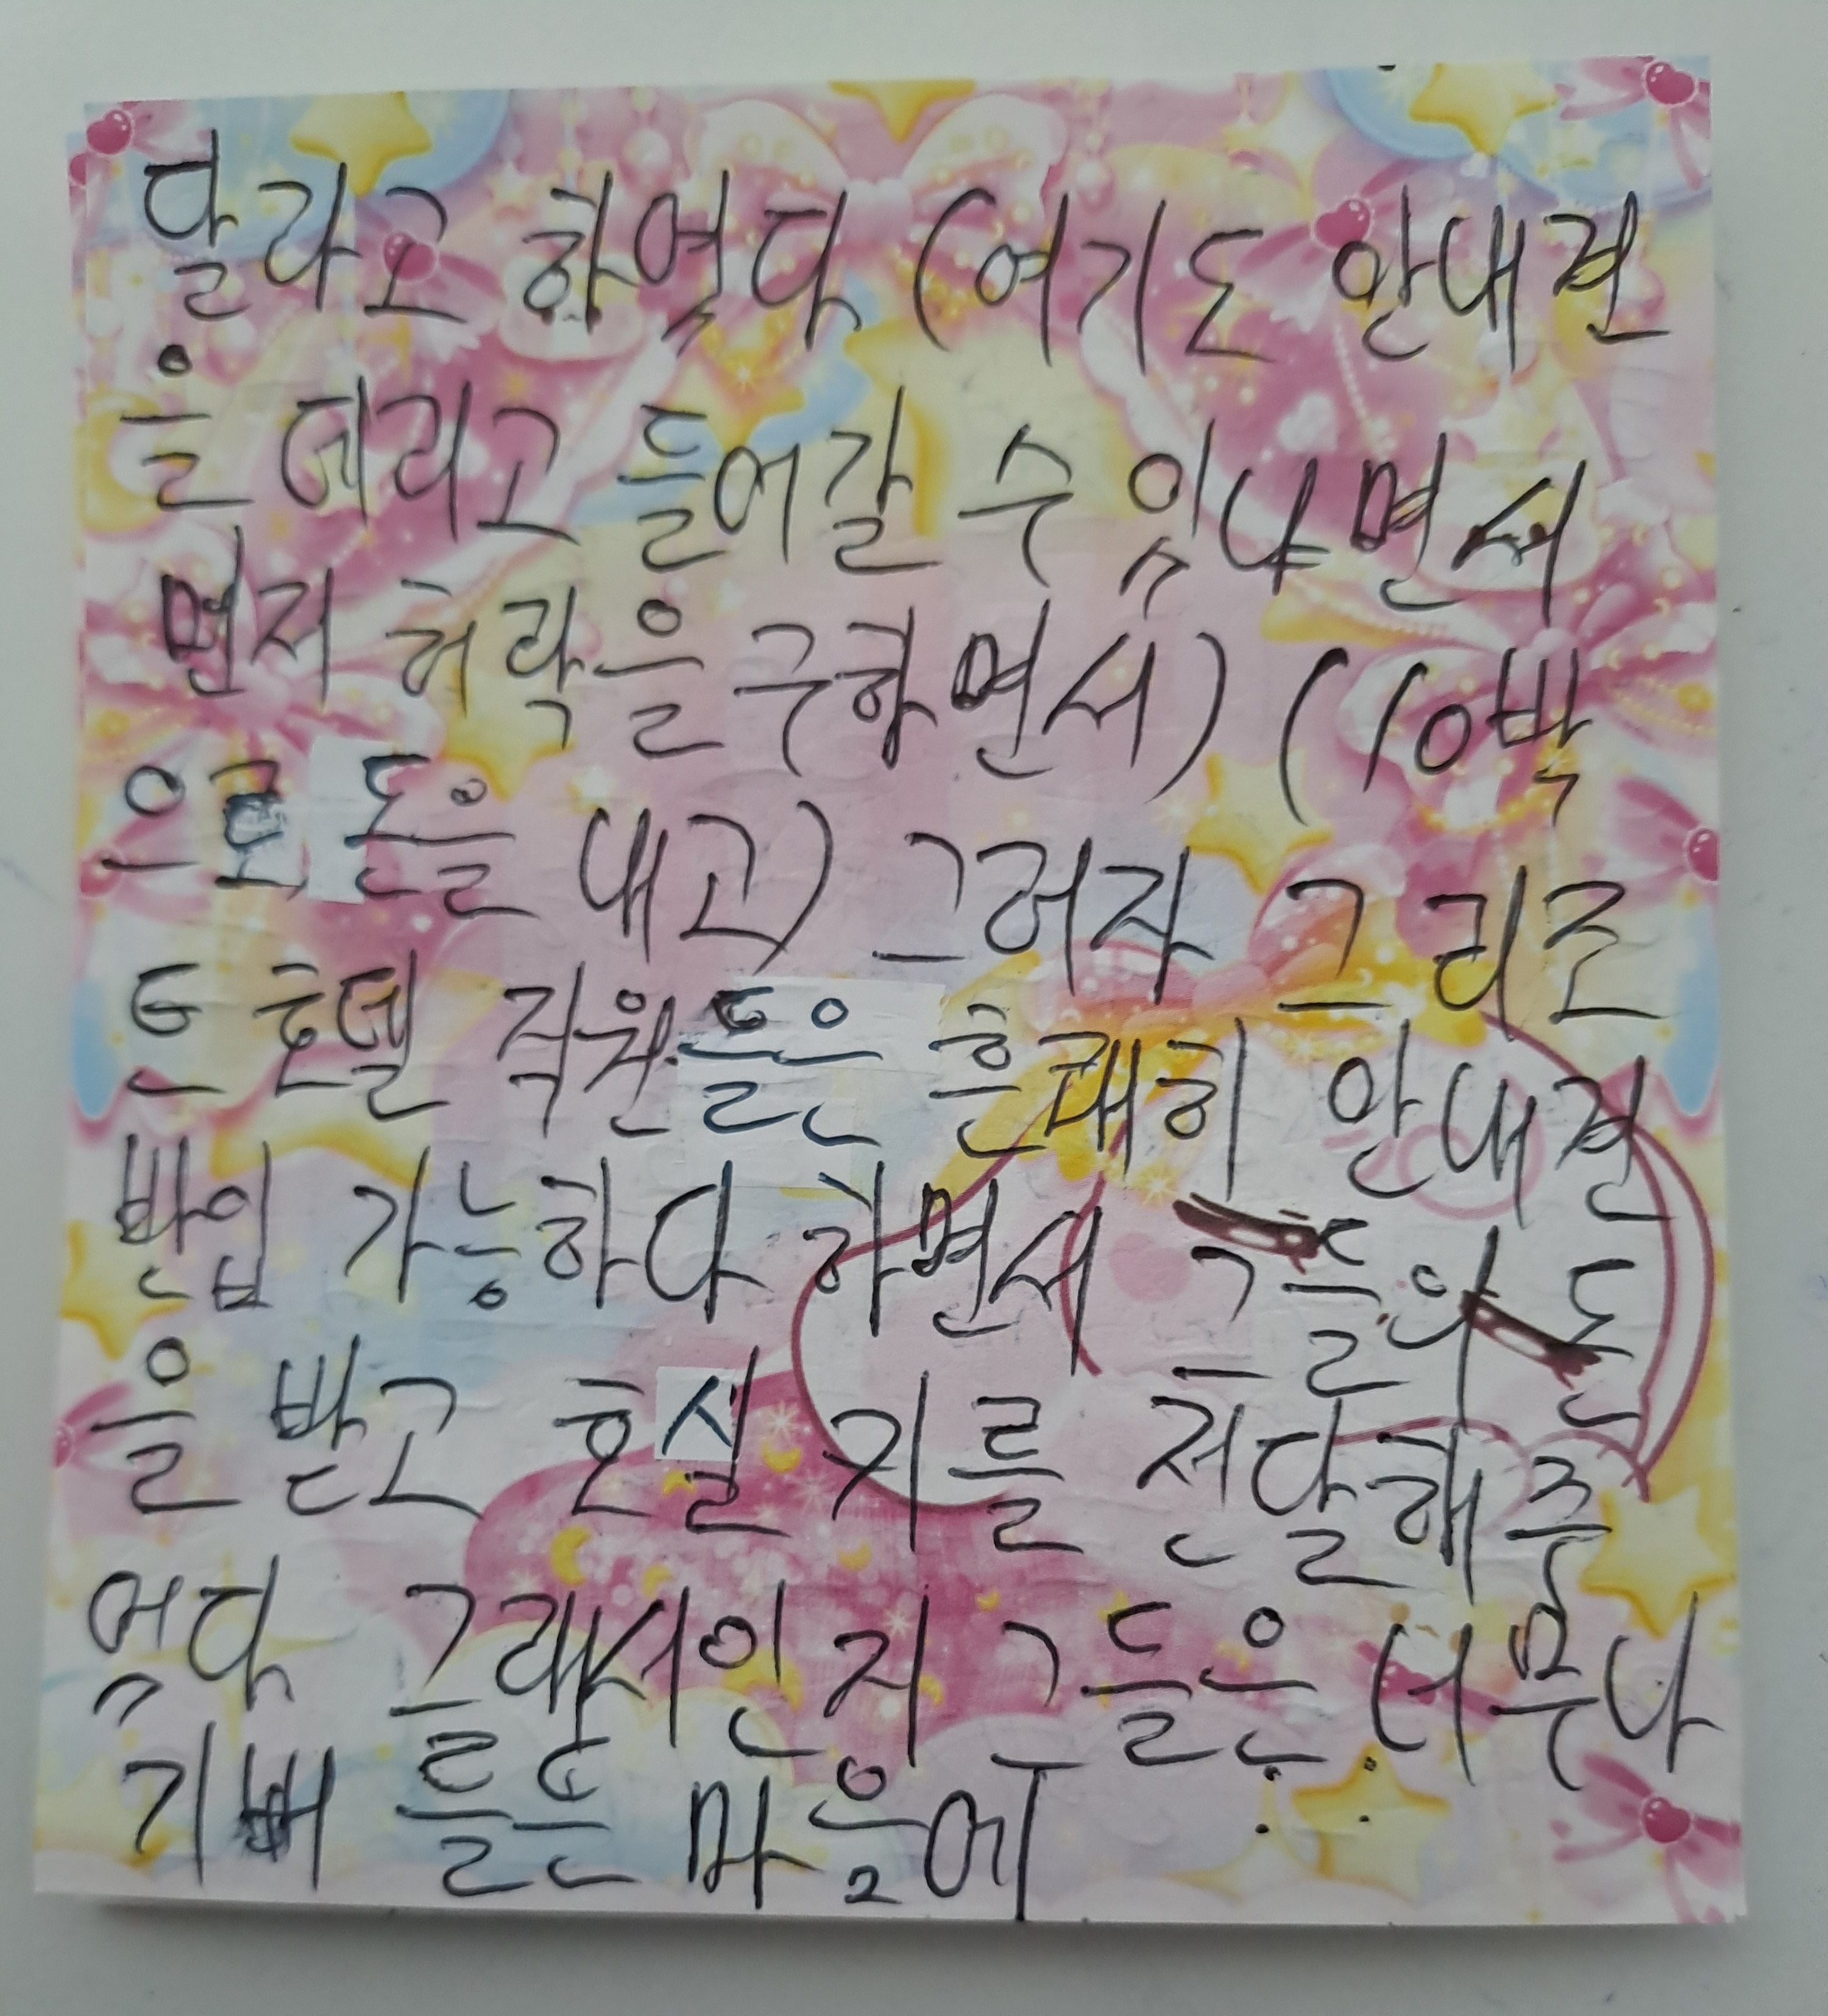 달라고 하였다 (여기도 안내견
을 데리고 들어갈 수 있냐면서
먼저 허락을 구하면서) (10박
으로 돈을 내고) 그러자 그리즈
든 호텔 직원들은 흔쾌히 안내견
반입 가능하다 하면서 그들의 돈
을 받고 호실 키를 전달해 주
었다 그래서인지 그들은 너무나
기뻐 들든 마음에